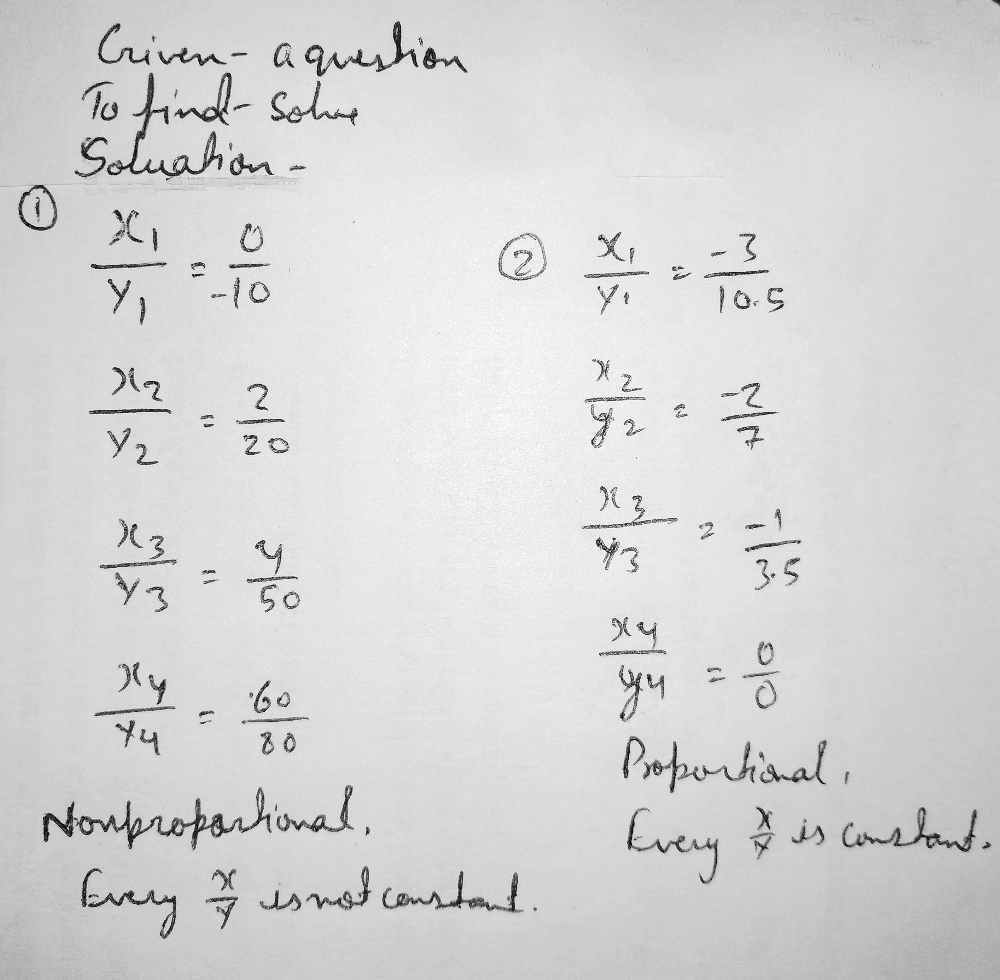 Given - a question
To find - Solve
Soluation -
①
x₁/y₁ = 0/-10
x₂/y₂ = 2/20
x₃/y₃ = 4/50
x₄/y₄ = 60/80
Nonproportional.
Every x/y is not constant.
② x₁/y₁ = -3/10.5
x₂/y₂ = -2/7
x₃/y₃ = -1/3.5
x₄/y₄ = 0/0
Proportional,
Every x/y is constant.